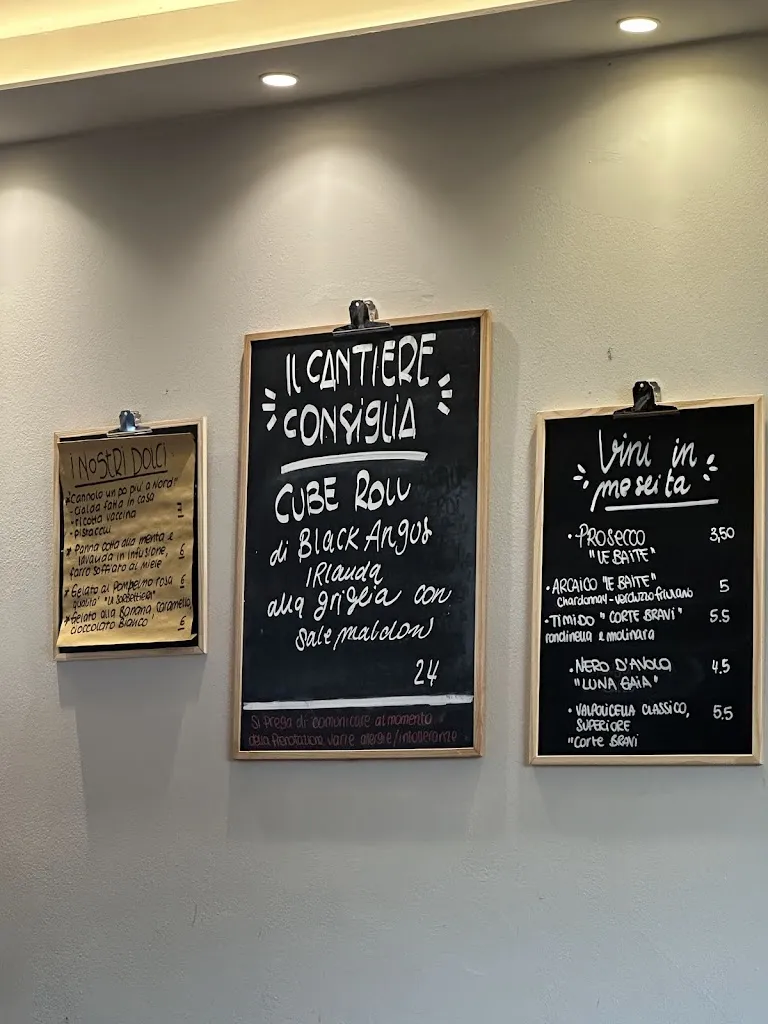 I NOSTRI DOLCI
*Cannolo un po più a Nord"
-cialda fatta in casa
*ricotta vaccina
*pistacchi
* Panna cotta alla menta e
lavanda in infusione,
farro soffiato al miele 6
*Gelato al Pompelmo rosa 6
qualità "LA SORBETTIERA"
*Gelato alla Banana caramello,
cioccolato Bianco 6
IL CANTIERE
CONSIGLIA
CUBE ROLL
di BLACK ANGUS
IRLANDA
alla griglia con
sale maldon
24
Si prega di comunicare al momento
della prenotazione varie allergie/intolleranze
Vini in
mescita
•PROSECCO 3,50
"LE BAITE"
•ARCAICO "LE BAITE" 5
chardonnay-verduzzo friulano
•TIMIDO "CORTE BRAVI" 5.5
rondinella e molinara
•NERO D'AVOLA 4.5
"LUNA GAIA"
•VALPOLICELLA CLASSICO, 5.5
SUPERIORE
"Corte BRAVI